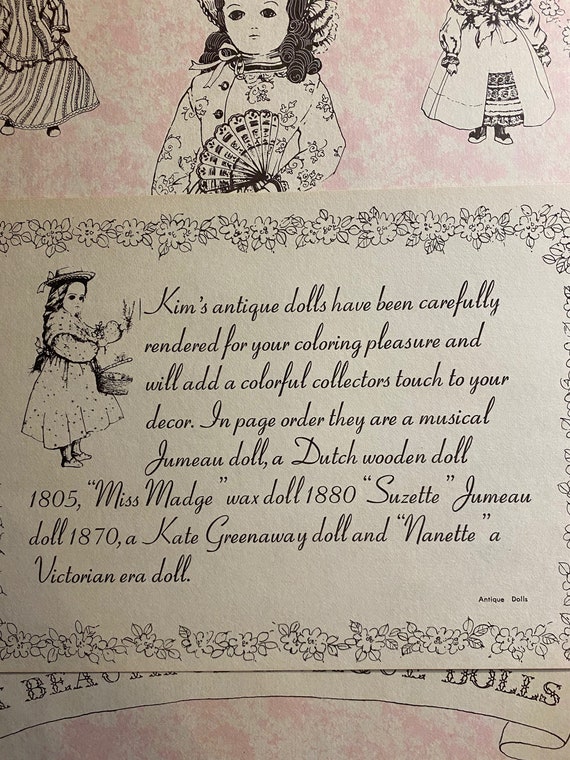 Kim's antique dolls have been carefully
rendered for your coloring pleasure and
will add a colorful collectors touch to your
decor. In page order they are a musical
Jumeau doll, a Dutch wooden doll
1805, "Miss Madge" wax doll 1880 "Suzette" Jumeau
doll 1870, a Kate Greenaway doll and "Nanette" a
Victorian era doll.
Antique Dolls
DOLLS